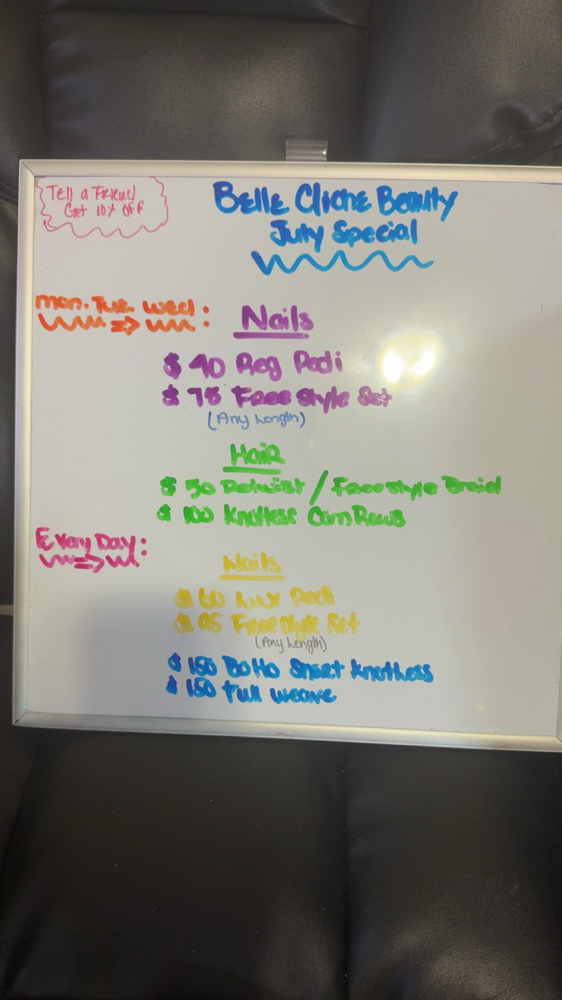 Tell a Friend
Get 10% off
Belle Cliche Beauty
July Special
mon. Tue. wed:
Nails
$ 40 Reg Pedi
$ 75 Free Style Set
(Any Length)
Hair
$ 50 Retwist / Freestyle Braid
$ 100 Knotless Corn Rows
Every Day:
Nails
$ 60 Lux Pedi
$ 95 Free Style Set
(Any Length)
$ 150 BoHo Short Knotless
$ 150 Full weave